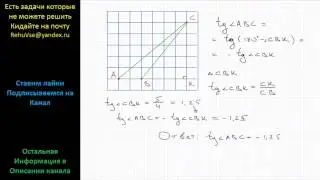 Есть задачи которые
не можете решить
Кидайте на почту
RehuVse@yandex.ru
Ставим лайки
Подписываемся на
Канал
Остальная
Информация в
Описании канала
A
B
C
K
tg∠ABC =
= tg(180°-∠CBK) =
= - tg∠CBK
△CBK
tg∠CBK = CK/CB
tg∠CBK = 5/4 = 1,25
tg∠ABC = -tg∠CBK = -1,25
Ответ: tg∠ABC = -1,25